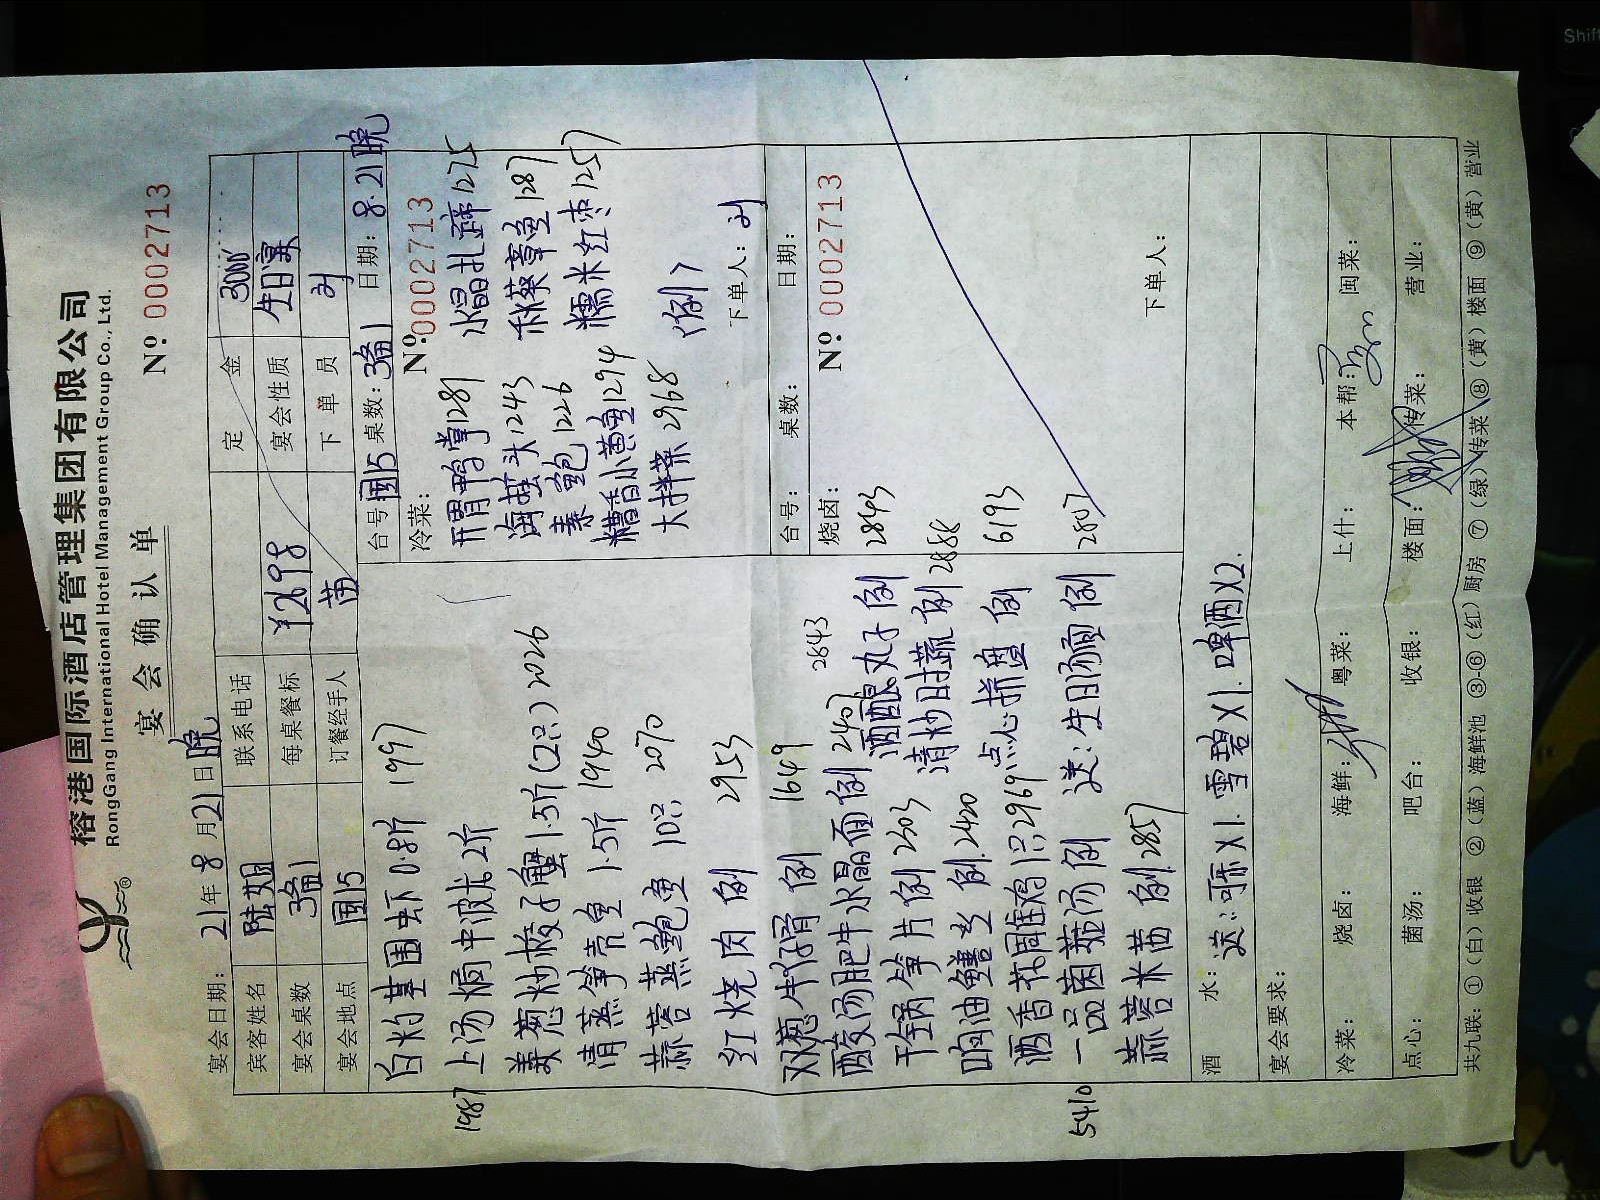 榕港国际酒店管理集团有限公司
RongGang International Hotel Management Group Co., Ltd.
宴会确认单
№ 0002713
宴会日期: 21年8月21日晚
宾客姓名 联系电话 定金 3000
宴会桌数 每桌餐标 ¥2698 宴会性质 生日宴
宴会地点 国15 订餐经手人 苗 下单员 刘
台号 国15 桌数: 日期: 8.21晚
白灼基围虾0.8斤 1997
1987 上汤焗中波龙2斤
姜葱炒梭子蟹1.5斤(2只) 2026
清蒸笋壳鱼 1.5斤 1940
蒜蓉蒸鲍鱼 10只 2070
红烧肉 例 2953
双葱牛仔骨 例 1649
酸汤肥牛水晶面例 2407
干锅笋片例 2303
响油鳝丝 例 2420
酒香花雕鸡1只2969
5410 一品菌菇汤 例
蒜蓉米苋 例 2857
酒酿丸子 例 2843
2843
清炒时蔬 例 2888
点心拼盘 例 6193
送: 生日汤面 例 2807
冷菜: № 0002713
开胃鸭掌1281 水晶扎蹄1275
海蜇头1243 秋葵章鱼1287
素鲍1226 糯米红枣1257
糟香小黄鱼1294
大拌菜 2968 (例)
下单人: 刘
台号: 桌数: 日期:
烧卤: № 0002713
下单人:
酒水: 送: 可乐X1. 雪碧X1. 啤酒X2.
宴会要求:
冷菜: 烧卤: 海鲜: 粤菜: 上什: 本帮: 闽菜:
点心: 菌汤: 吧台: 收银: 楼面: 传菜: 营业:
共九联: ①(白)收银 ②(蓝)海鲜池 ③-⑥(红)厨房 ⑦(绿)传菜 ⑧(黄)楼面 ⑨(黄)营业
Shift